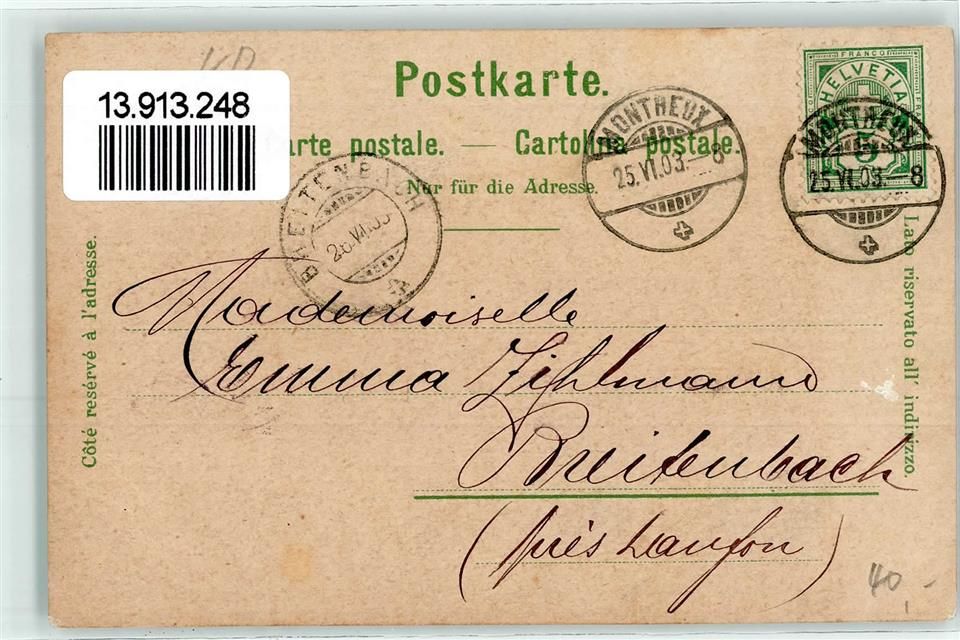 13.913.248
Postkarte.
arte postale. — Cartolina postale.
Nur für die Adresse.
Côté resérvé à l'adresse.
Lato riservato all' indirizzo.
FRANCO
HELVETIA
5
MONTREUX
25.VI.03.–8
MONTREUX
25.VI.03.–8
BREITENBACH
26.VI.03
Mademoiselle
Emma Zihlmann
Breitenbach
(près Laufon)
40,-